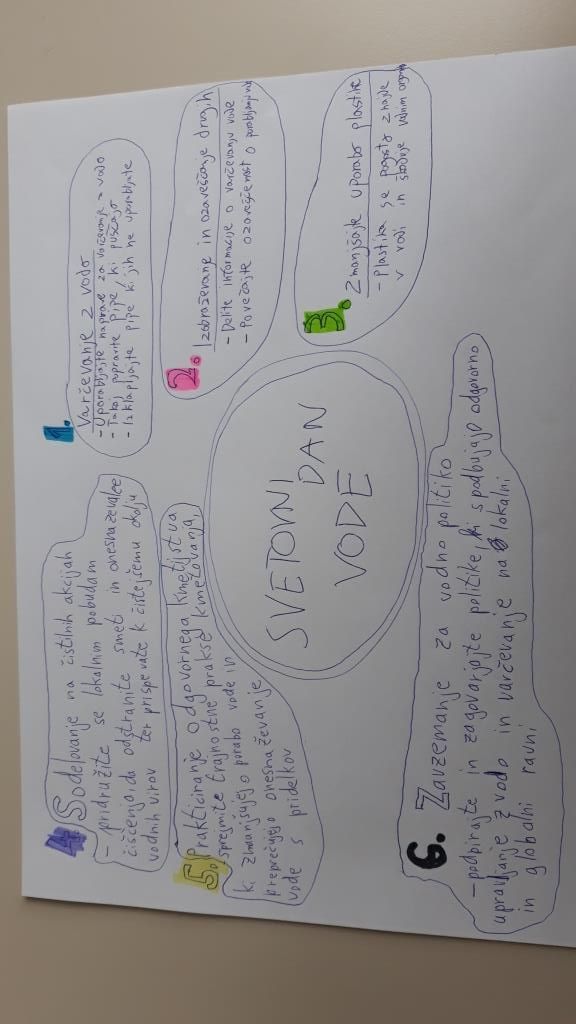 SVETOVNI
DAN
VODE
1.
Varčevanje z vodo
- Uporabljajte naprave za varčevanje z vodo
- Takoj popravite pipe, ki puščajo
- Izklapljajte pipe k jih ne uporabljate
2. Izobraževanje in ozaveščanje drugih
- Delite informacije o varčevanju vode
- Povečajte ozaveščenost o
3. Zmanjšajte uporabo plastike
- Plastika se pogosto znajde
v vodi in škoduje vodnim
4. Sodelovanje na čistilnih akcijah
- pridružite se lokalnim pobudam
čiščenja, da odstranite smeti in onesnaževalce
vodnih virov ter prispevate k čistejšemu okolju
5. Prakticiranje odgovornega kmetijstva
- sprejmite trajnostne prakse kmetovanja,
ki zmanjšujejo porabo vode in
preprečujejo onesnaževanje
vode s pridelkov
6. Zavzemanje za vodno politiko
- podpirajte in zagovarjajte politike, ki spodbujajo odgovorno
upravljanje z vodo in varčevanje na lokalni
in globalni ravni